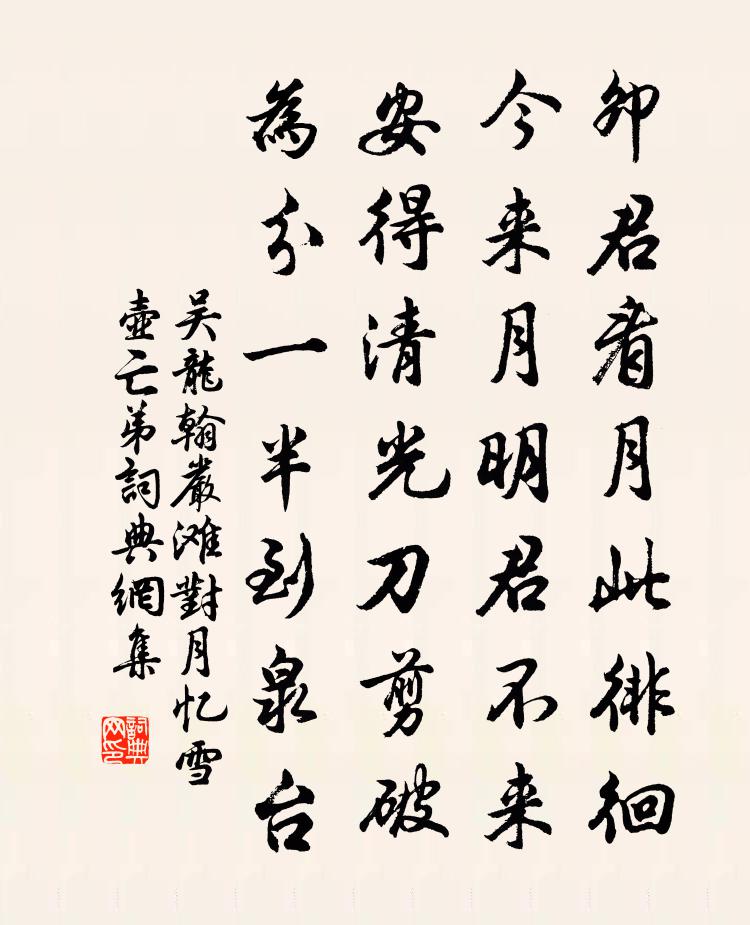 卯君看月此徘徊
今来月明君不来
安得清光刀剪破
為分一半到泉台
吴龍翰嚴滩對月忆雪
壷亡弟詞典網集
詞典
网印